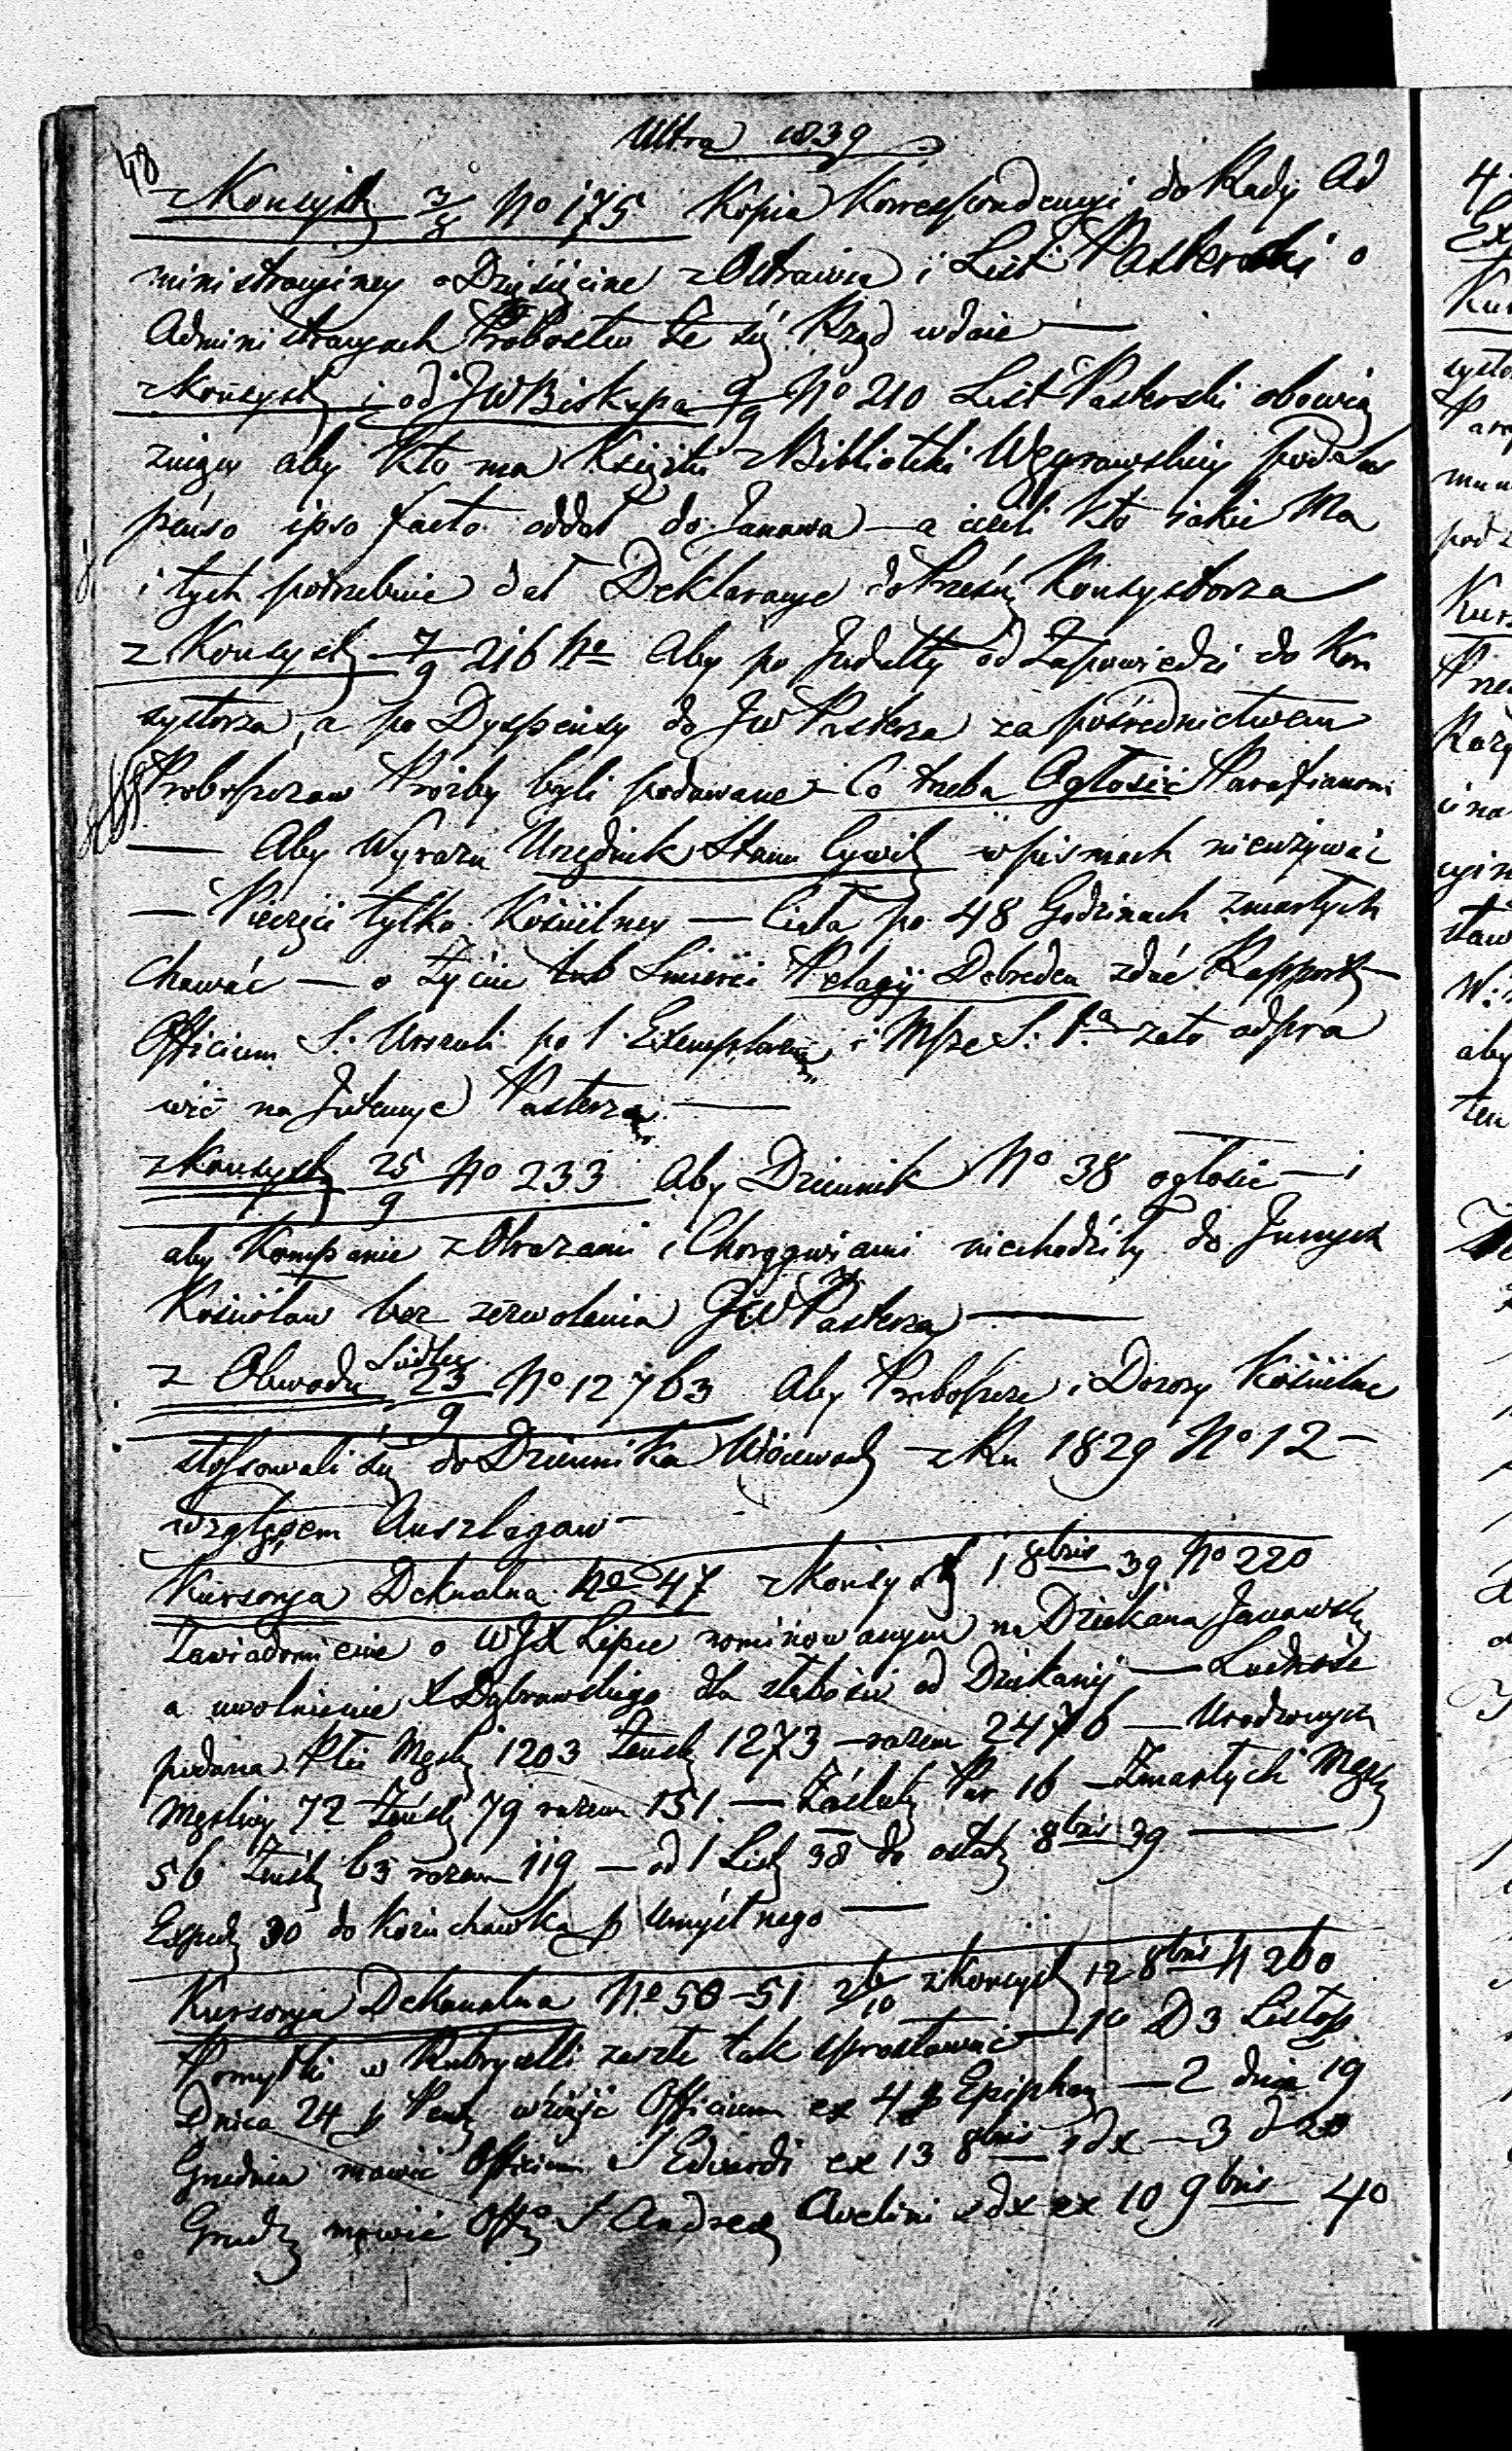 48
Ultra 1839
z Konsyst 7/8 No 175 Kopia Korrespondencyi do Rady Ad
ministracyiney o Dziesięcine z Ostrówka i List Pasterski o
Administracyach Probostw że się Rząd wdaie —
z Konsyst i od JW Biskupa 9/9 No 210 List Pasterski obowią
zuiący aby kto ma Książki z Biblioteki Węgrowskiey pod Sus
penso ipso facto oddał do Janowa — a ieśli kto iakie Ma
i tych potrzebuie dał Deklaracye do Konsystorza
z Konsyst 7/9 216 No Aby po Indulty od Zapowiedzi do Kon
systorza, a po Dyspensy do JW Pasterza za pośrednictwem
Proboszczow Prozby byli podawane — Co trzeba Ogłosić Parafianom
— Aby Wyrazu Urzędnik Stanu Cywil w pismach nieużywać
— Pieczęci tylko Kościelney — Ciała po 48 Godzinach zmarłych
chować — o Życiu lub Smierci Pelagij Debreden zdać Rapport —
Officium S. Urszuli po 1 Exemplarzu i Msze S. 1ą zato odpra
wić na Intencye Pasterza —
z Konsyst 25/9 No 233 Aby Dziennik No 38 ogłosić — i
aby Kompanie z Obrazami i Chorągwiami niechodziły do Innych
Kościołow bez zezwolenia JW Pasterza —
z Obwodu Siedlec 23/9 No 12763 Aby Proboszcze i Dozory Kościelne
stossowali się do Dziennika Woiewod z Ru 1829 No 12 —
względem Auszlagow —
Kursorja Dekanalna No 47 z Konsyst 1 8bris 39 No 220
Zawiadomienie o WJX Lipce nominowanym na Dziekana Janowsk
a uwolnienie X Dąbrowskiego dla słabości od Dziekanij — Ludność
podana Płci Męsk 1203 Żeńsk 1273 — razem 2476 — Urodzonych
Męskiey 72 Żeńsk 79 razem 151 — Zaślub Par 16 — Zmarłych Męsk
56 Żeńsk 63 razem 119 — od 1 List 38 do ostat 8bris 39 —
Exped 30 do Kożuchowka p Umyślnego —
Kursorja Dekanalna No 50-51 26/10 z Konsyst 12 8bris N 260
Pomyłki w Rubrycelli zaszłe tak sprostować — 1o D 3 Listop
Dnica 24 p Pent wziąść Officium ex 4 p Epiphan — 2 dnia 19
Grudnia mowić Officium S Edwardi ex 13 8bris sdx — 3 d 20
Grud mowić Offm S Andreæ Avelini sdx ex 10 9bris 4o